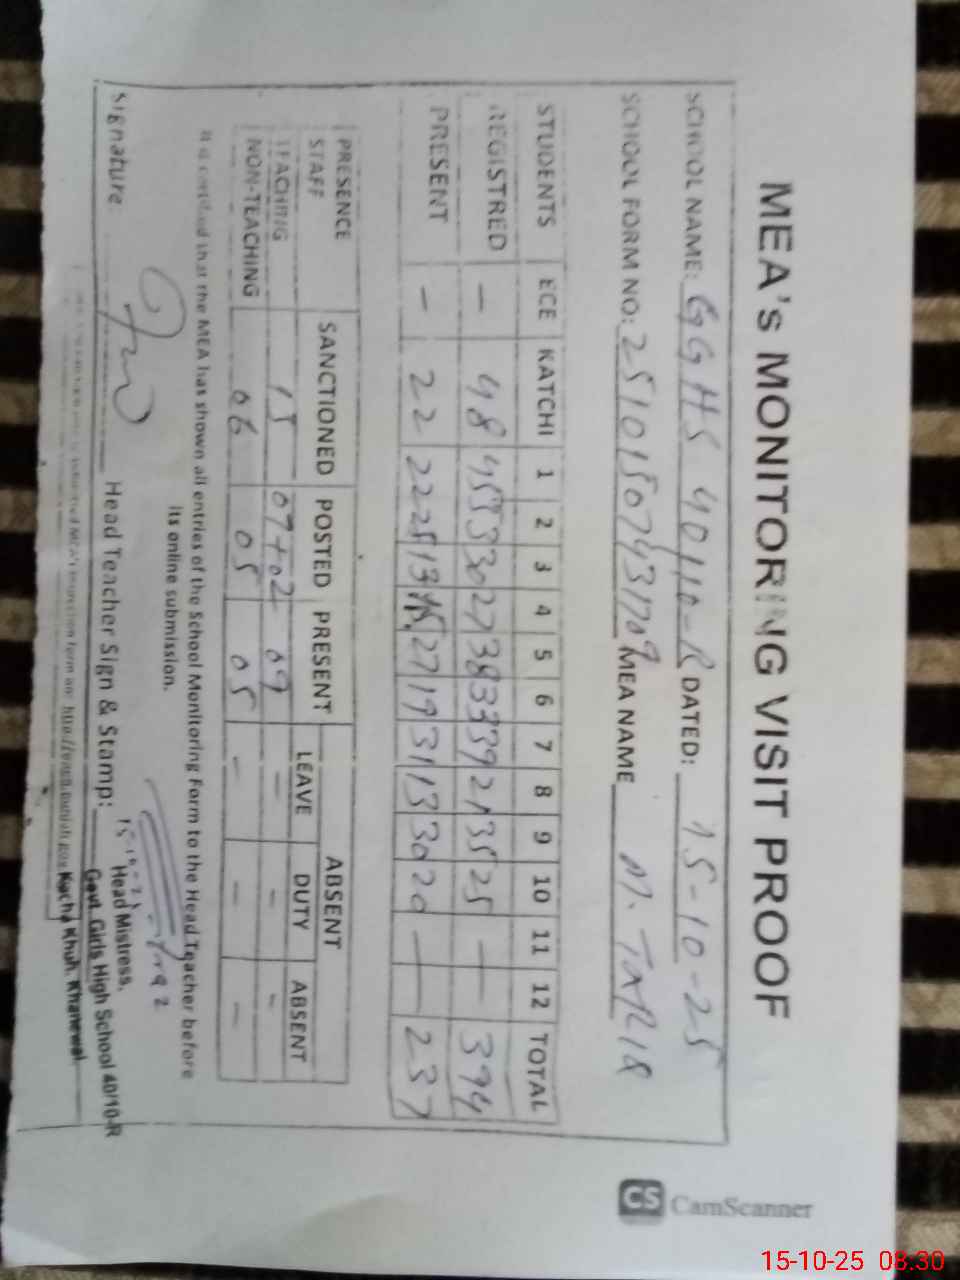 MEA's MONITORING VISIT PROOF
SCHOOL NAME: GGHS 40/10-R DATED: 15-10-25
SCHOOL FORM NO: 25101507431709 MEA NAME M. TAHIR
STUDENTS ECE KATCHI 1 2 3 4 5 6 7 8 9 10 11 12 TOTAL
REGISTRED – 48 45 53 30 27 38 33 39 21 35 25 – – 394
PRESENT – 22 22 25 13 15 27 19 31 13 30 20 – – 237
PRESENCE STAFF SANCTIONED POSTED PRESENT ABSENT
LEAVE DUTY ABSENT
TEACHING 15 07+02 09 – – –
NON-TEACHING 06 05 05 – – –
It is certified that the MEA has shown all entries of the School Monitoring Form to the Head Teacher before
its online submission.
Signature: Head Teacher Sign & Stamp:
15-10-25
Head Mistress,
Govt. Girls High School 40/10-R
Kacha Khuh, Khanewal.
CS CamScanner
15-10-25 08:30